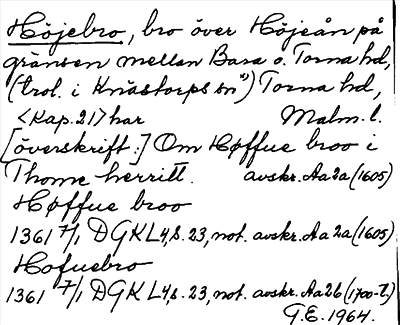 Höjebro, bro över Höjeån på
gränsen mellan Bara o. Torna hd,
(trol. i Knästorps sn") Torna hd,
<Kap. 21> har Malm. l.
[överskrift:] Om Høffue broo i
Thorne herritt. avskr. Aa2a (1605)
Høffue broo
1361 7/1 DGKL4,s. 23, not. avskr. Aa2a (1605)
Hofuebro
1361 7/1 DGKL4,s. 23, not. avskr. Aa26 (1700-t.)
G.E. 1964.